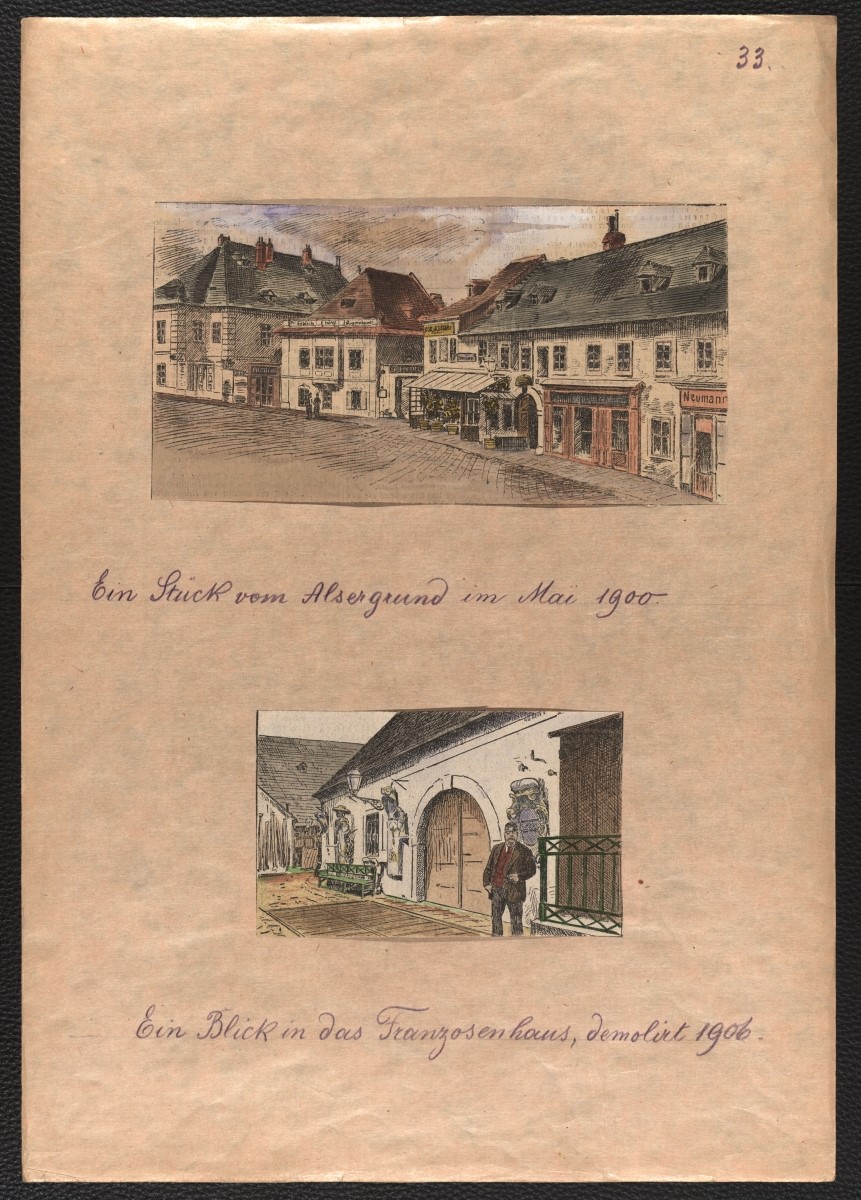 33.
Neumann
Ein Stück vom Alsergrund im Mai 1900.
Ein Blick in das Franzosenhaus, demolirt 1906.